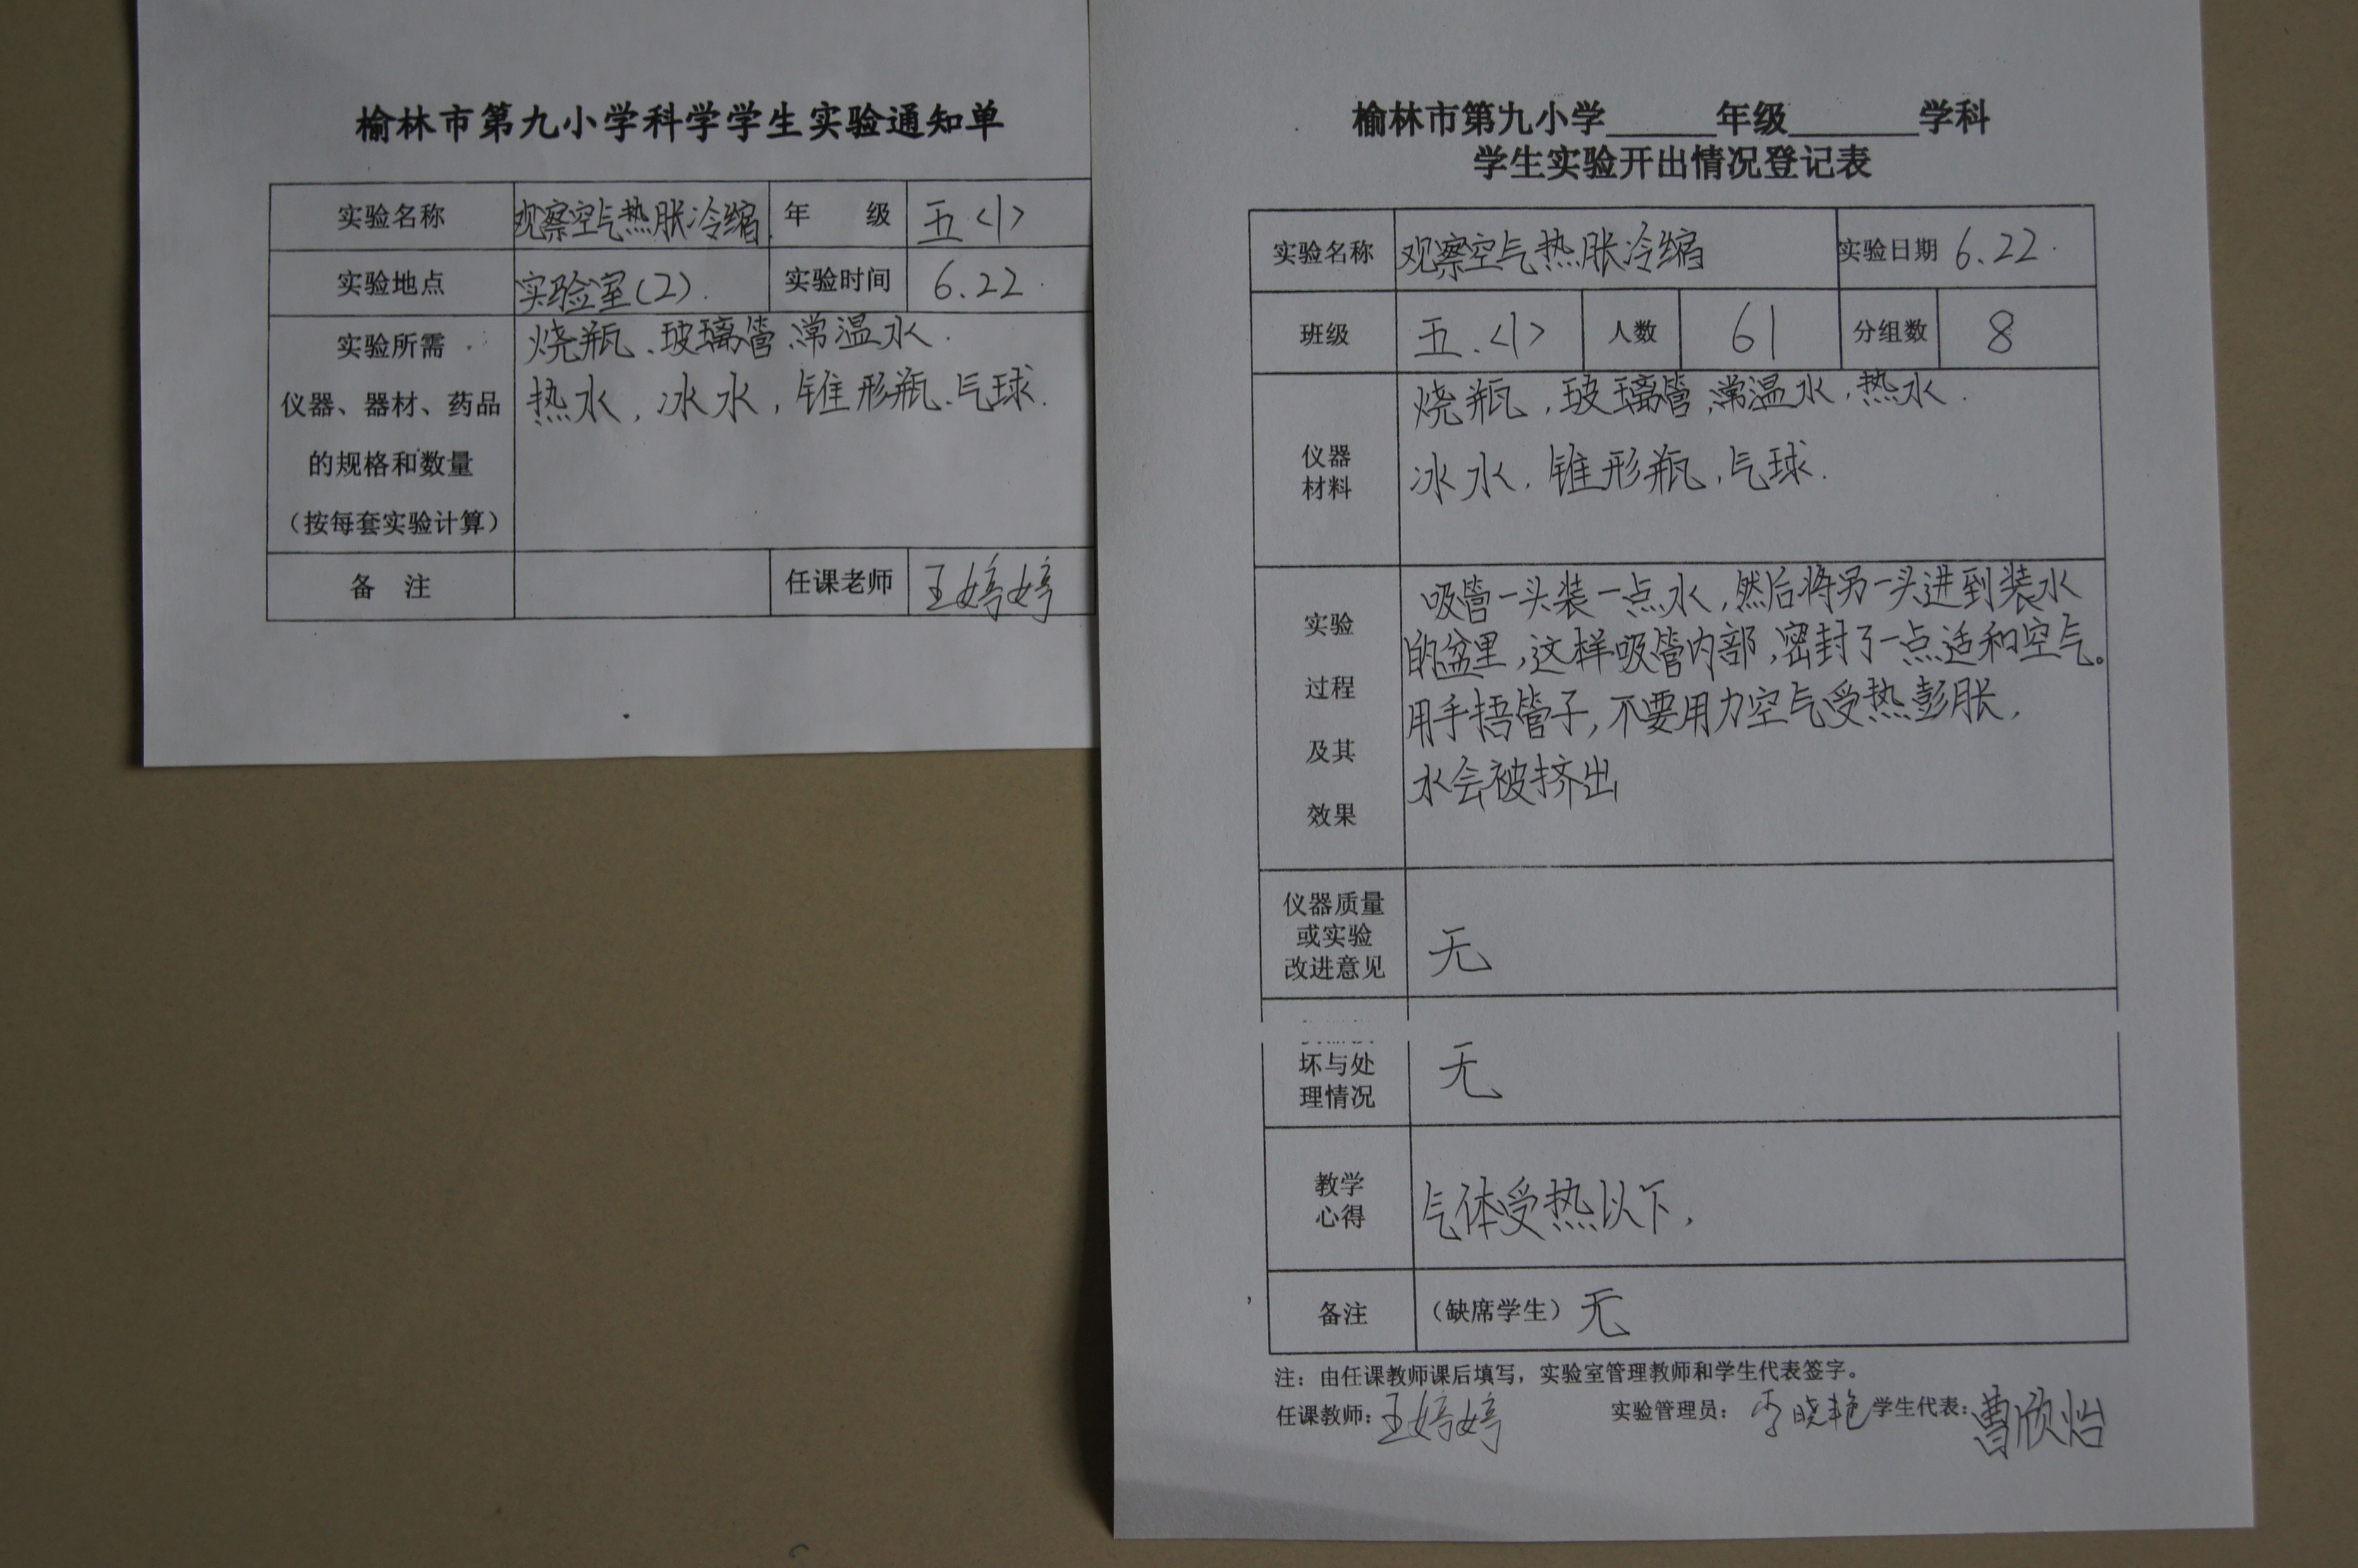 榆林市第九小学科学学生实验通知单
实验名称 观察空气热胀冷缩 年 级 五<1>
实验地点 实验室(2). 实验时间 6.22.
实验所需
仪器、器材、药品
的规格和数量
(按每套实验计算)
烧瓶、玻璃管、常温水.
热水, 冰水, 锥形瓶、气球.
备 注 任课老师 王婷婷
榆林市第九小学______年级______学科
学生实验开出情况登记表
实验名称 观察空气热胀冷缩 实验日期 6.22.
班级 五.<1> 人数 61 分组数 8
仪器
材料
烧瓶, 玻璃管、常温水, 热水.
冰水, 锥形瓶, 气球.
实验
过程
及其
效果
吸管一头装一点水,然后将另一头进到装水
的盆里,这样吸管内部,密封了一点适和空气。
用手捂管子,不要用力空气受热彭胀,
水会被挤出
仪器质量
或实验
改进意见
无
坏与处
理情况
无
教学
心得
气体受热以下,
备注 (缺席学生) 无
注：由任课教师课后填写，实验室管理教师和学生代表签字。
任课教师: 王婷婷 实验管理员: 李晓艳 学生代表: 曹欣怡